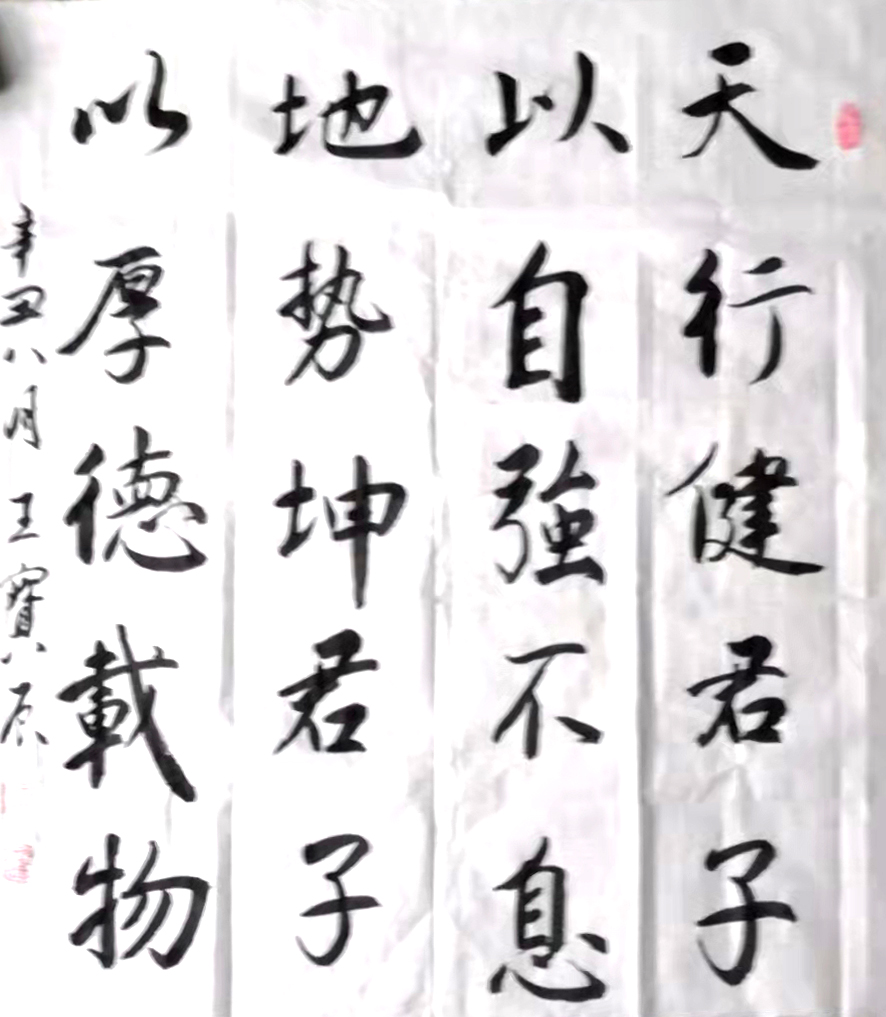 天行健君子
以自強不息
地势坤君子
以厚德載物
辛丑八月王寶辰